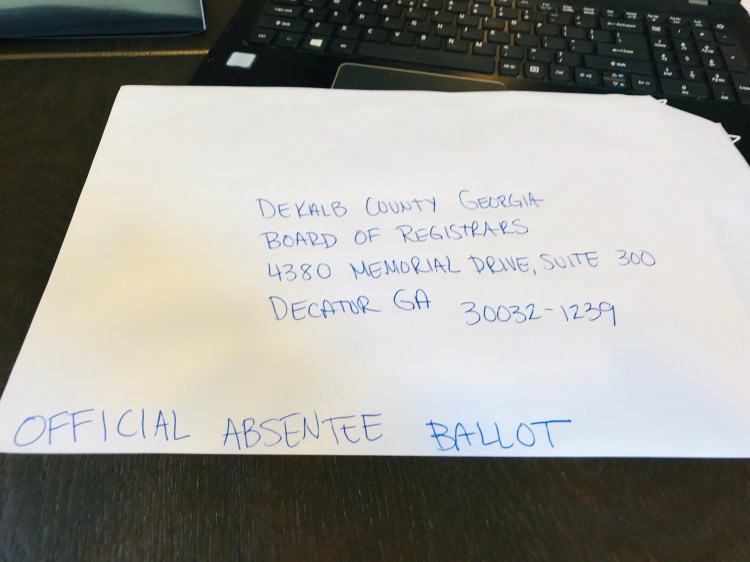 DEKALB COUNTY GEORGIA
BOARD OF REGISTRARS
4380 MEMORIAL DRIVE, SUITE 300
DECATUR GA 30032-1239
OFFICIAL ABSENTEE BALLOT